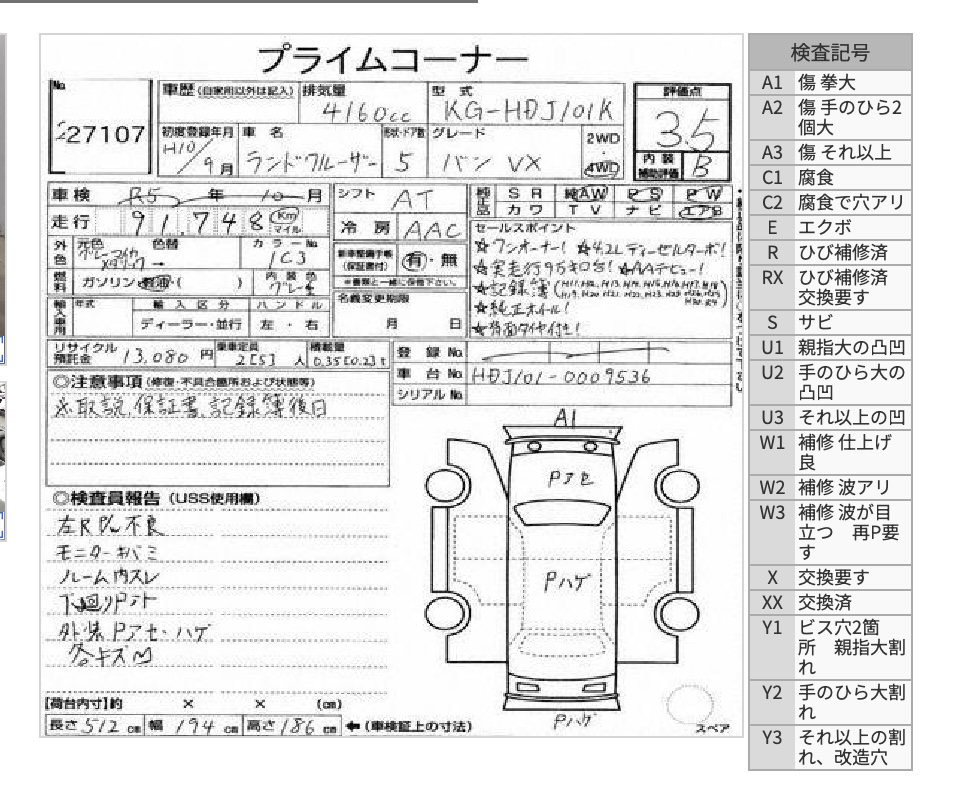 プライムコーナー
No.
27107
車歴(自家用以外は記入)
排気量 4160cc
型式 KG-HDJ101K
評価点 3.5
初度登録年月 H10/9月
車名 ランドクルーザー
形状・ドア数 5
グレード バン VX
2WD
4WD
内装補助評価 B
車検 R5年10月
シフト AT
純正品 SR 純AW PS PW
カワ TV ナビ エアB
走行 91,748 Km マイル
冷房 AAC
外色 元色 色替
カラーNo. 1C3
新車整備手帳(保証書付) 有・無
※書類と一緒に保管下さい。
燃料 ガソリン・軽油・( )
内装色 グレー
名義変更期限
月 日
輸入車用 年式 輸入区分 ハンドル
ディーラー・並行 左・右
セールスポイント
☆ワンオーナー! ☆4.2Lディーゼルターボ!
☆実走行9万キロ台! ☆AAデビュー!
☆記録簿
☆純正ホイール!
☆背面タイヤ付き!
リサイクル預託金 13,080円
乗車定員 2[5]人
積載量 0.35[0.2]t
登録No.
車台No. HDJ101-0009536
シリアルNo.
◎注意事項(修復・不具合箇所および状態等)
※取説、保証書、記録簿後日
◎検査員報告(USS使用欄)
左R P/W不良
モニターキバミ
ルーム内スレ
下回りPアト
外装Pアセ・ハゲ
各キズ凹
A1
Pアセ
Pハゲ
Pハゲ
スペア
【荷台内寸】約 × × (cm)
長さ512cm 幅194cm 高さ186cm ←(車検証上の寸法)
検査記号
A1 傷 拳大
A2 傷 手のひら2個大
A3 傷 それ以上
C1 腐食
C2 腐食で穴アリ
E エクボ
R ひび補修済
RX ひび補修済 交換要す
S サビ
U1 親指大の凸凹
U2 手のひら大の凸凹
U3 それ以上の凹
W1 補修 仕上げ良
W2 補修 波アリ
W3 補修 波が目立つ 再P要す
X 交換要す
XX 交換済
Y1 ビス穴2箇所 親指大割れ
Y2 手のひら大割れ
Y3 それ以上の割れ、改造穴